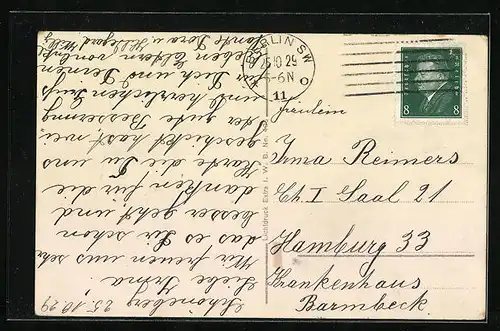 Schöneberg 25.10.29
Liebe Irma!
Wir freuen uns sehr
das es Dir schon
besser geht und
danken für die
Karte die Du uns
geschickt hast. Wei-
ter gute Besserung
und herzlichen Gruß
für Dich und Deinen
lieben Eltern von
Tante Dora u. Hildegard
BERLIN SW
25.10.29
5-6N
11
DEUTSCHES REICH
8 8
Fräulein
Irma Reimers
Ch. I Saal 21
Hamburg 33
Krankenhaus
Barmbeck.